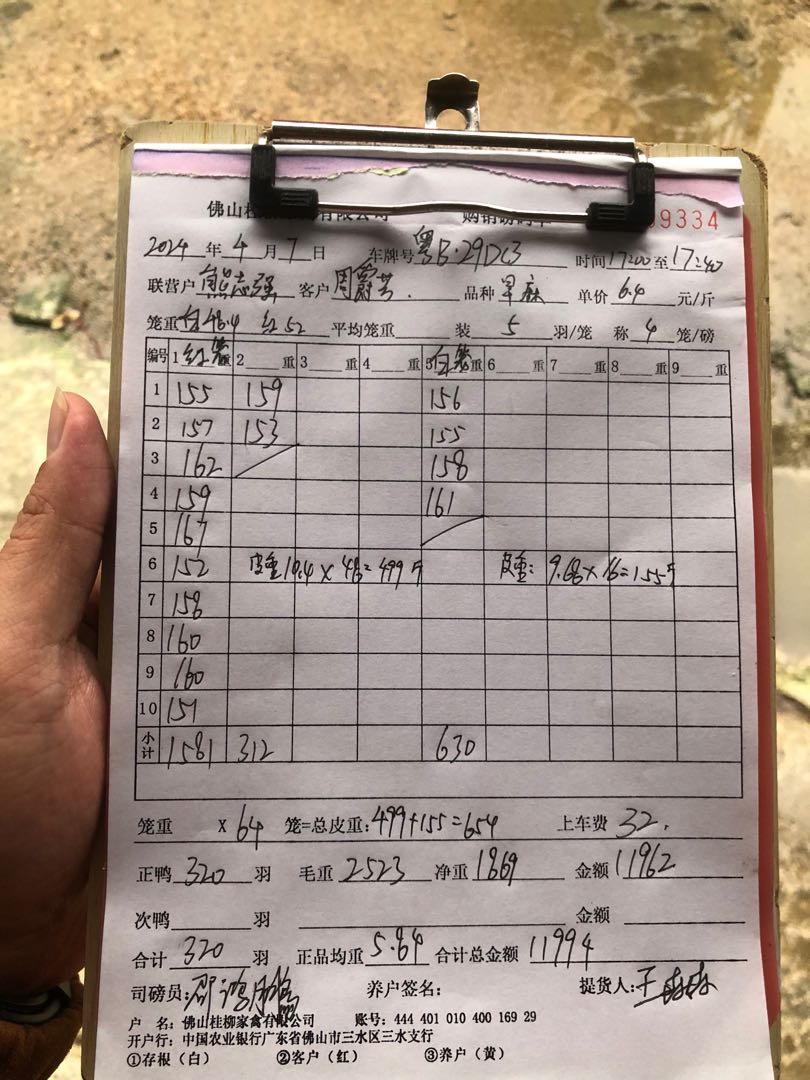 佛山桂 有限公司 购销磅码单 09334
2024 年 4 月 7 日 车牌号 粤B·29DC3 时间 17:00 至 17:40
联营户 熊志强 客户 周蔚芳. 品种 早麻 单价 6.4 元/斤
笼重 白48.4 红52 平均笼重 装 5 羽/笼 称 4 笼/磅
编号 1 红笼重 2 重 3 重 4 重 5 白笼重 6 重 7 重 8 重 9 重
1 155 159 156
2 157 153 155
3 162 158
4 159 161
5 167
6 152 皮重 10.4×48=499斤 皮重: 9.68×16=155斤
7 158
8 160
9 160
10 151
小计 1581 312 630
笼重 X 64 笼=总皮重: 499+155=654 上车费 32.
正鸭 320 羽 毛重 2523 净重 1869 金额 11962
次鸭 羽 金额
合计 320 羽 正品均重 5.84 合计总金额 11994
司磅员: 养户签名: 提货人: 王
户 名: 佛山桂柳家禽有限公司 账号: 444 401 010 400 169 29
开户行: 中国农业银行广东省佛山市三水区三水支行
①存根（白） ②客户（红） ③养户（黄）